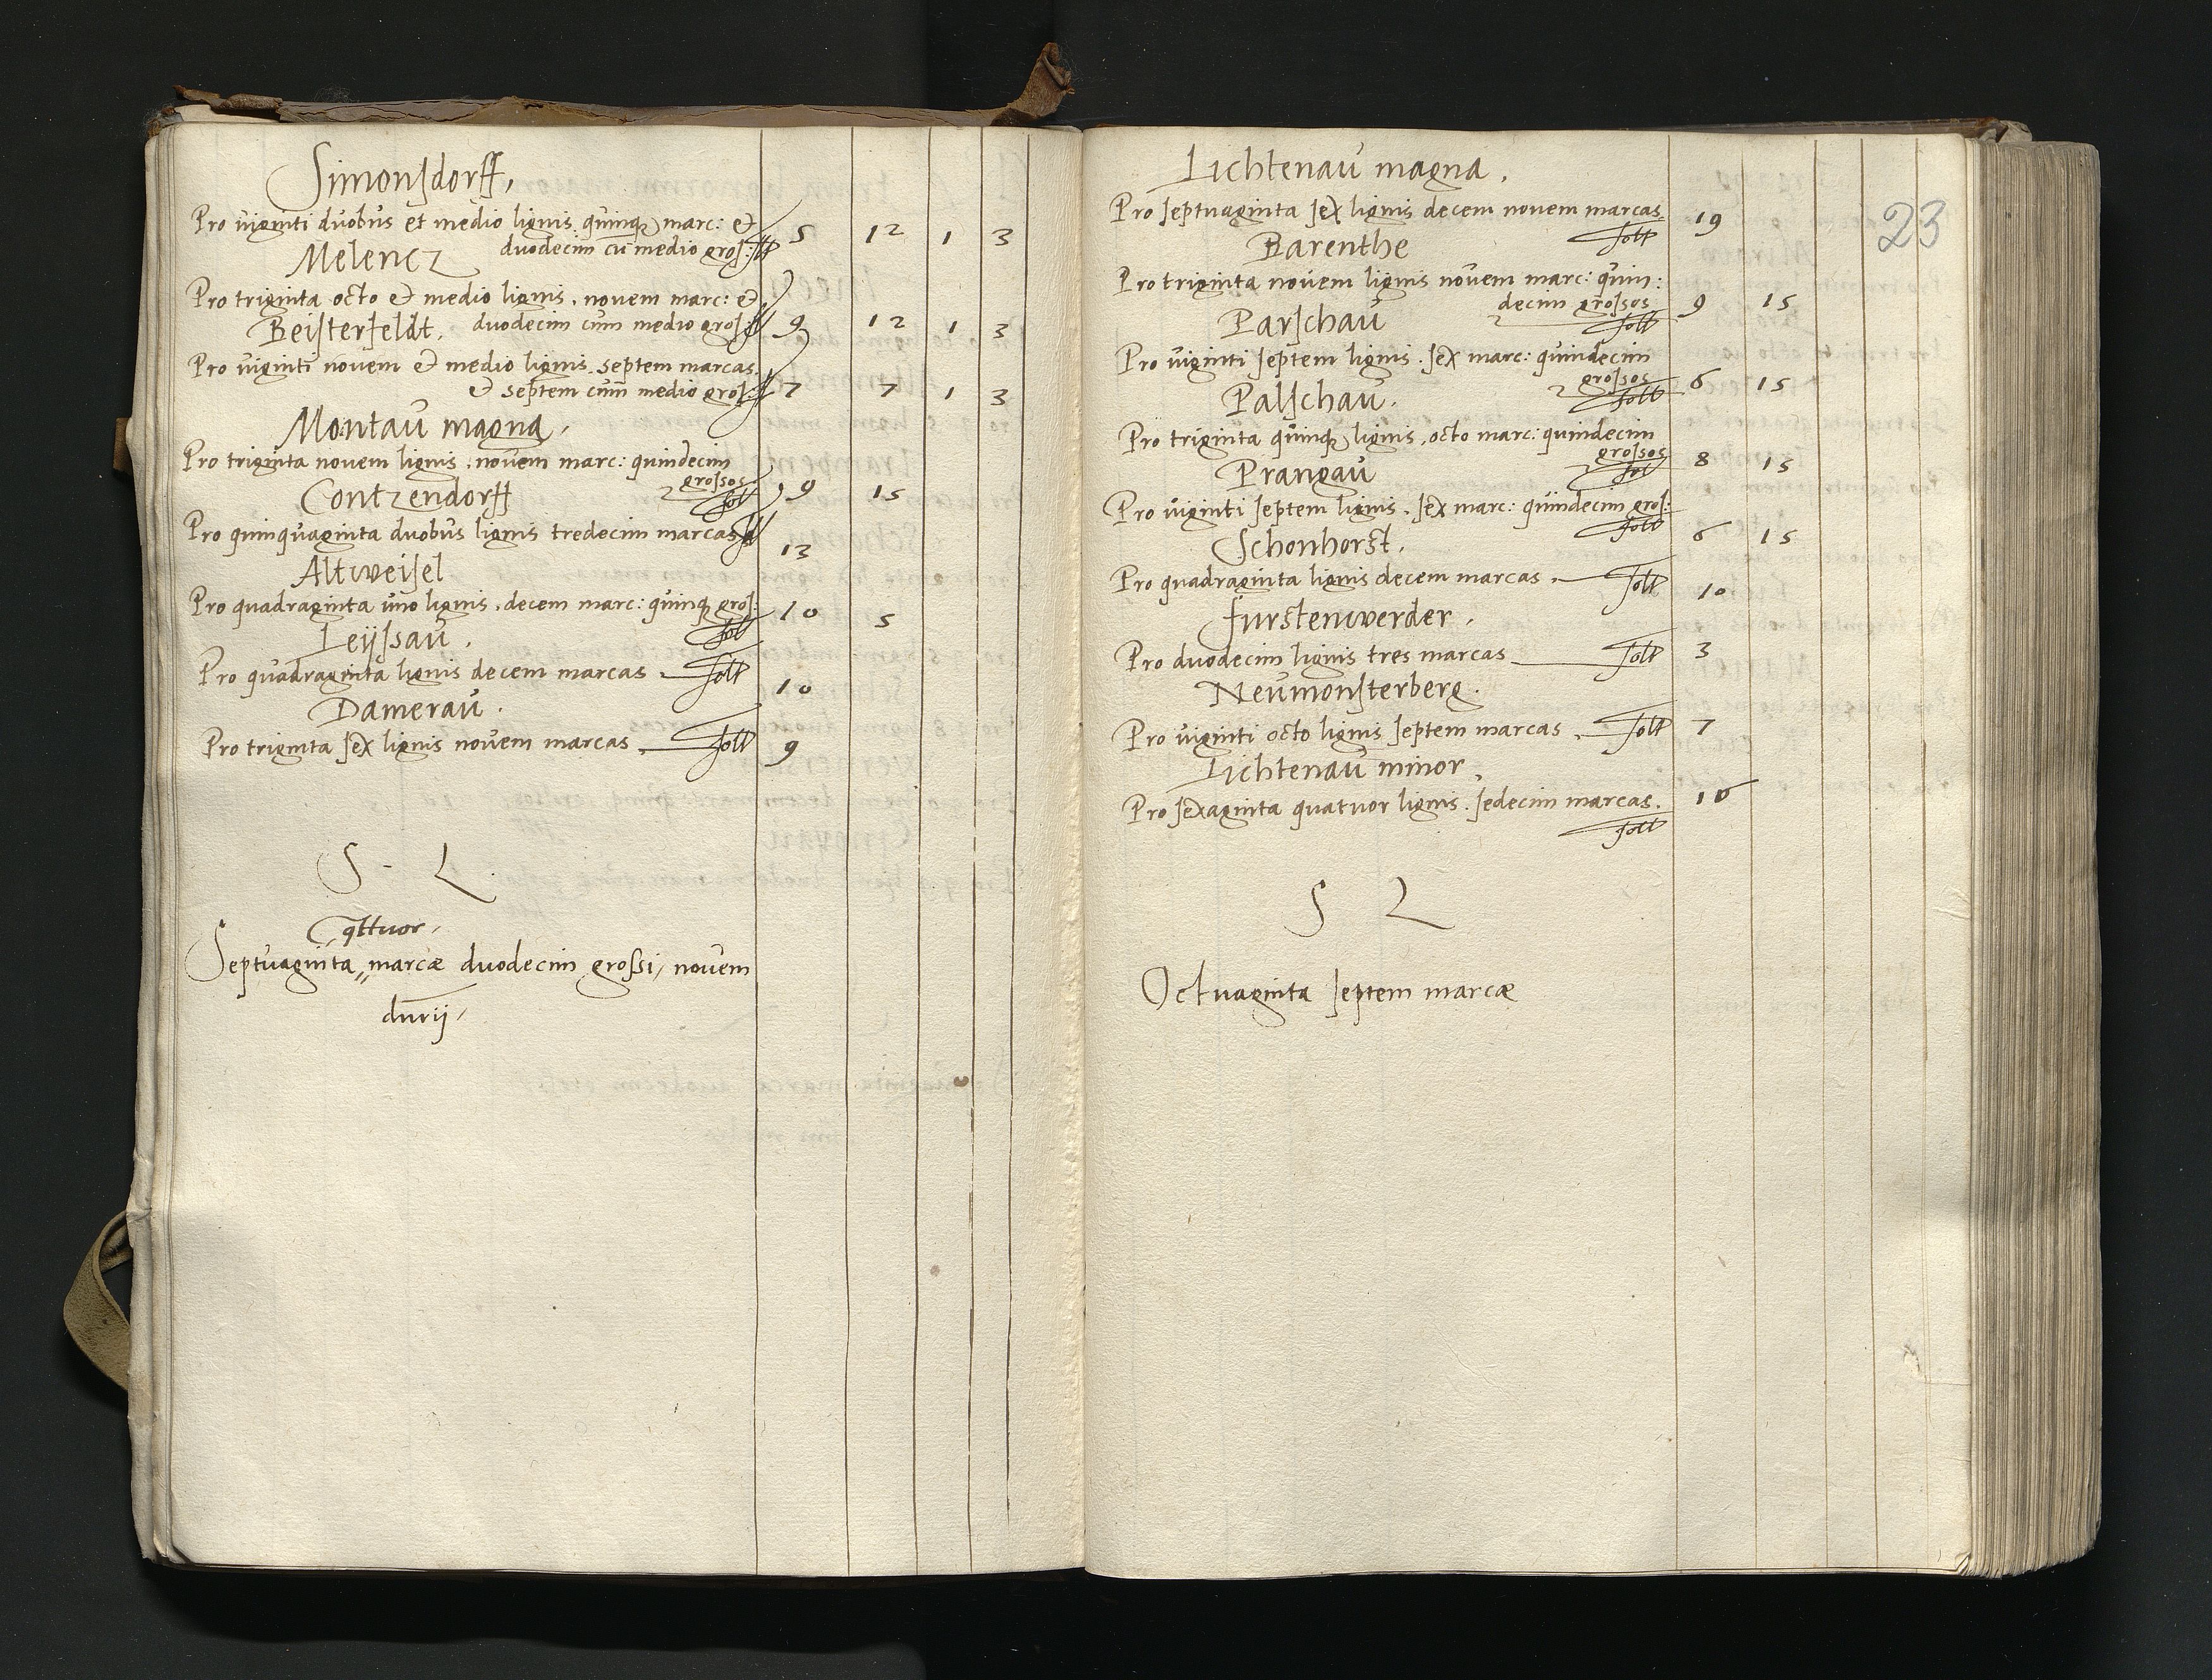 Simonsdorff,
Pro viginti duobus et medio lignis quinque marc: et
duodecim cu medio gros: solt 5 12 1 3
Melencz
Pro triginta octo et medio lignis, novem marc: et
duodecim cum medio gros: 9 12 1 3
Beisterfeldt.
Pro viginti novem et medio lignis septem marcas.
et septem cum medio gros: 7 7 1 3
Montau magna,
Pro triginta novem lignis, novem marc: quindecim
grossos solt 9 15
Contzendorff
Pro quinquaginta duobus lignis tredecim marcas 13
Altweisel
Pro quadraginta uno lignis, decem marc: quinq gros: 10 5
solt
Leyssau.
Pro quadraginta lignis decem marcas. solt 10
Damerau.
Pro triginta sex lignis novem marcas. solt 9
S - L
qttuor,
Septuaginta,, marcæ duodecim grossi, novem
durij,
23
Lichtenau magna.
Pro septuaginta sex lignis decem novem marcas 19
solt
Barenthe
Pro triginta novem lignis novem marc: quin:
decim grossos 9 15
solt
Parschau
Pro viginti septem lignis. sex marc: quindecim
grossos 6 15
solt
Palschau.
Pro triginta quinq lignis, octo marc: quindecim
grossos 8 15
solt
Prangau
Pro viginti septem lignis. sex marc: quindecim gros:
solt 6 15
Schonhorst.
Pro quadraginta lignis decem marcas. solt 10
furstenwerder.
Pro duodecim lignis tres marcas solt 3
Neumonsterberg.
Pro viginti octo lignis septem marcas. solt 7
Lichtenau minor
Pro sexaginta quatuor lignis. sedecim marcas. 16
solt
S L
Octuaginta septem marcæ